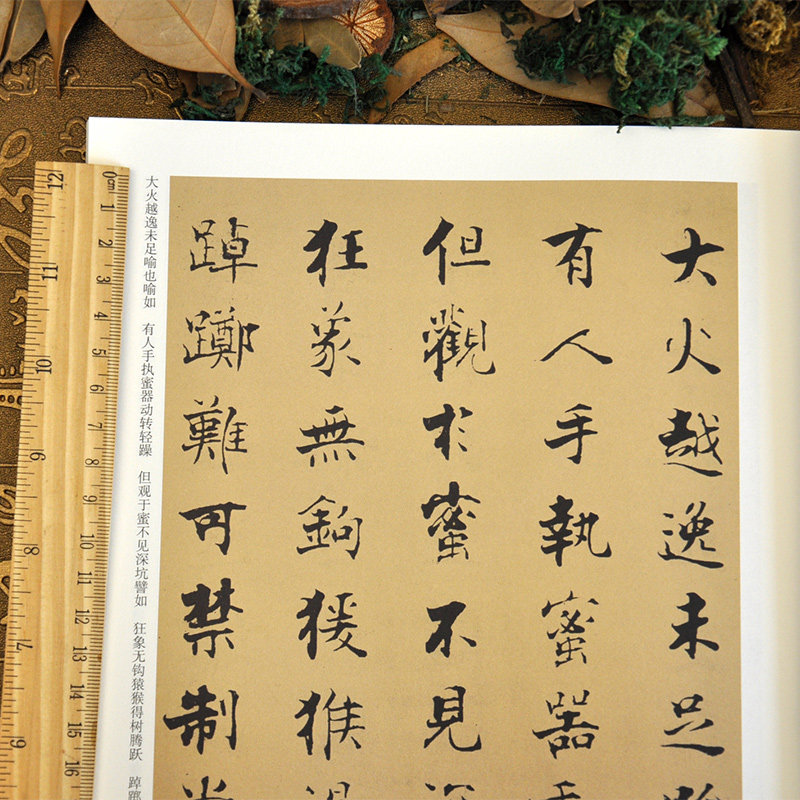 大火越逸未足
有人手執蜜器
但觀於蜜不見
狂象無鉤猨猴
踔躑難可禁制
大火越逸未足喻也喻如 有人手执蜜器动转轻躁 但观于蜜不见深坑譬如 狂象无钩猿猴得树腾跃 踔踯
0cm 1 2 3 4 5 6 7 8 9 10 11 12 13 14 15 16
12 11 10 9 8 7 6